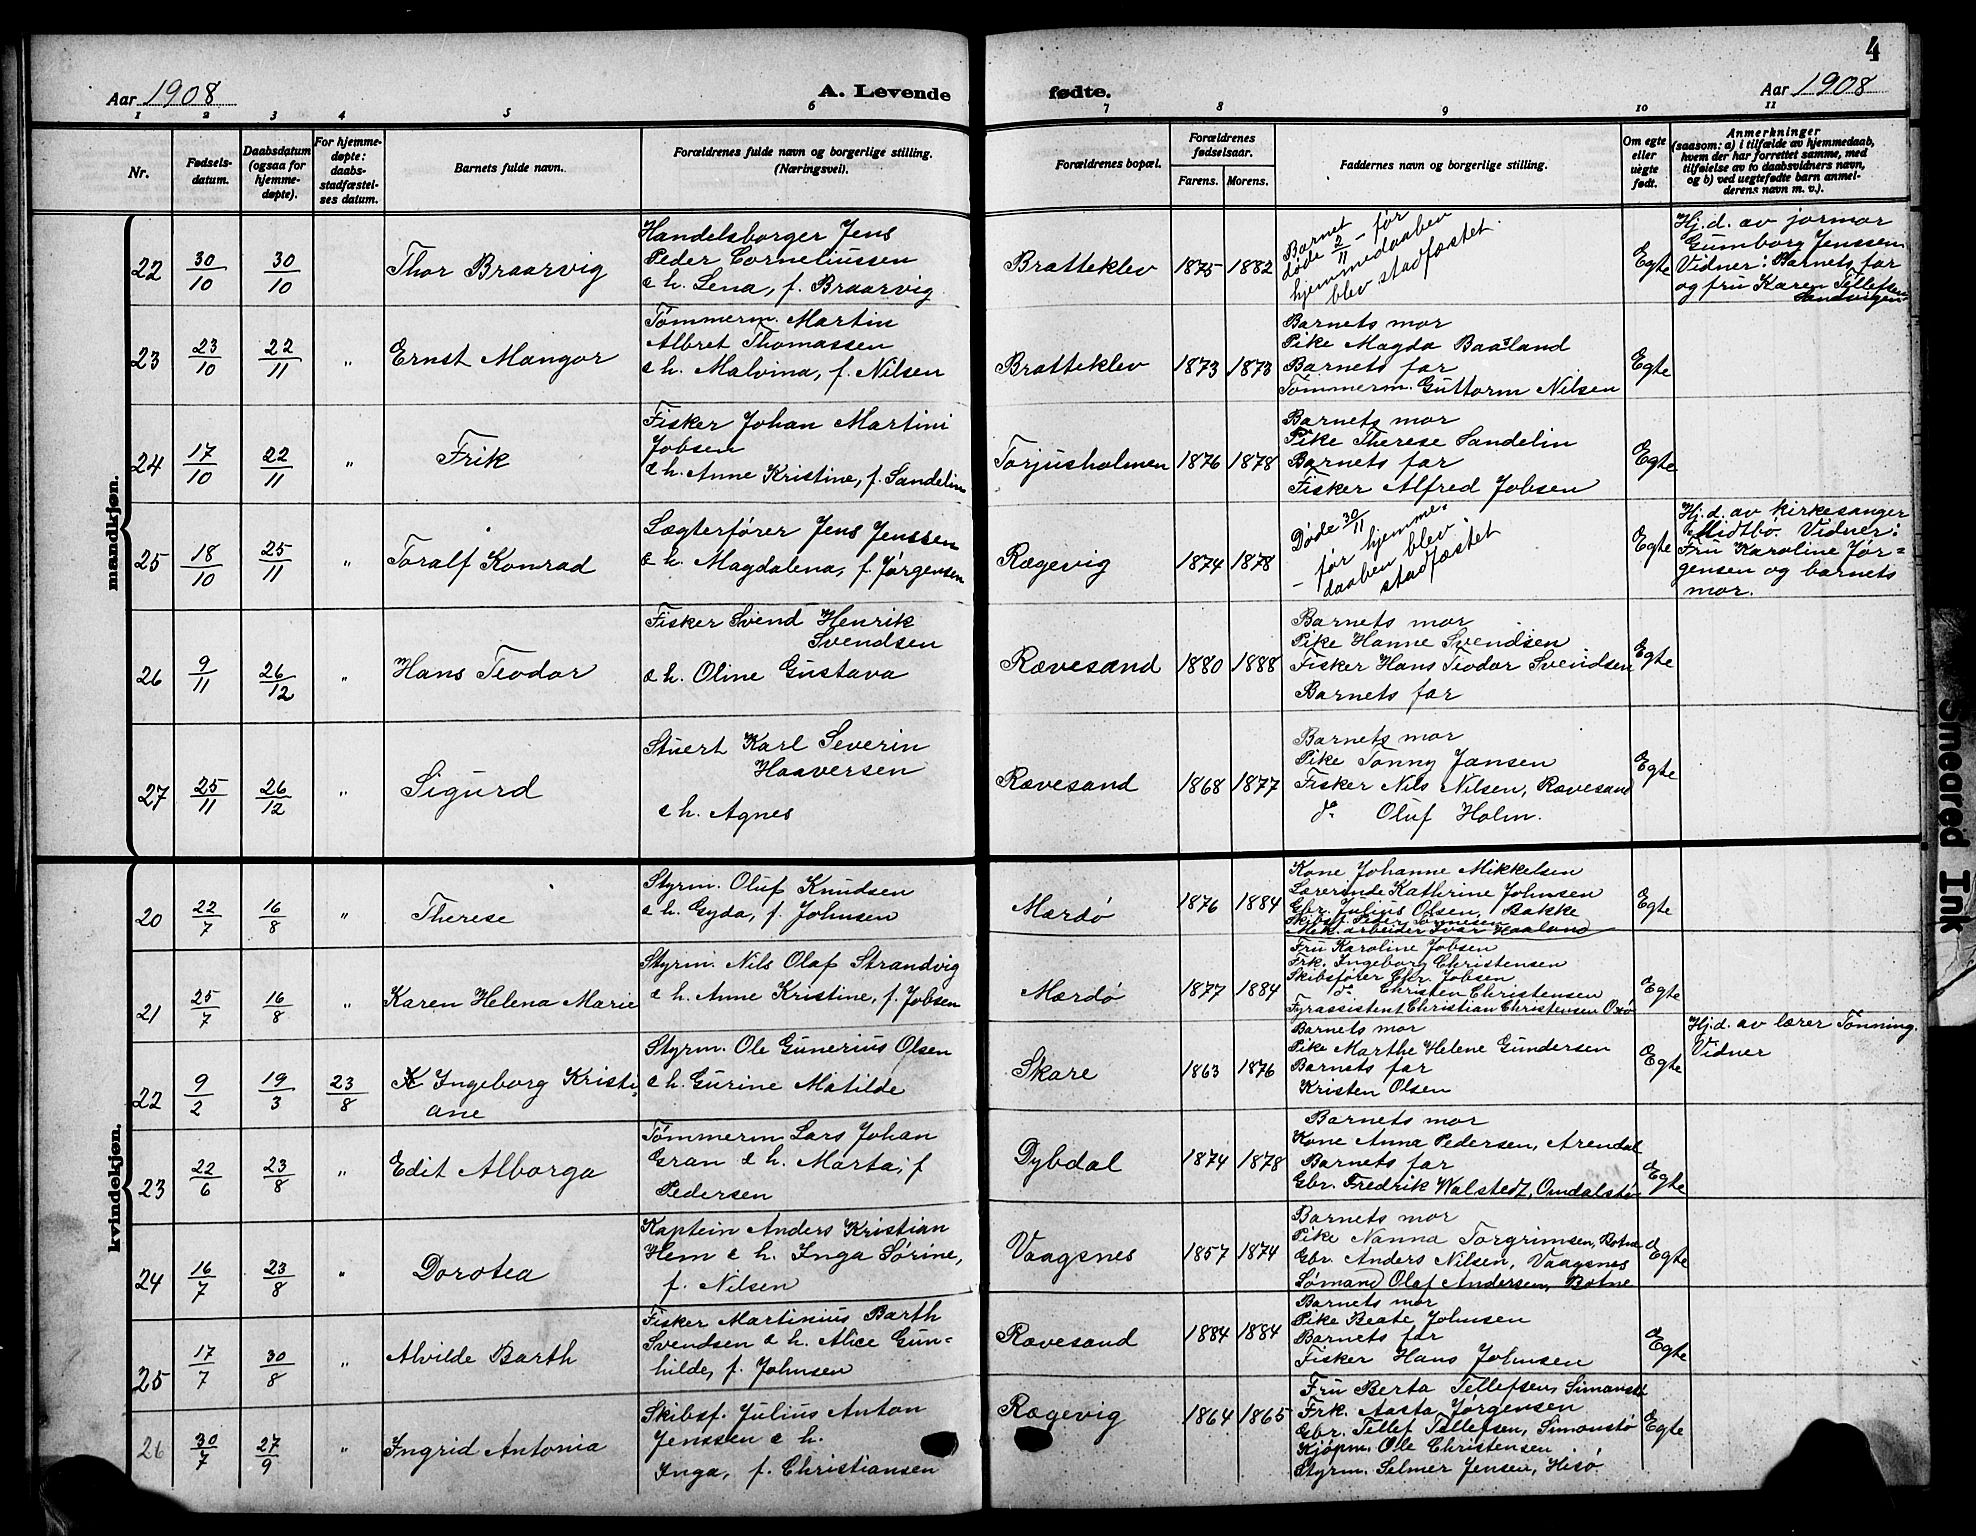 4
Aar 1908
A. Levende fødte.
Aar 1908
1 2 3 4 5 6 7 8 9 10 11
Nr.
Fødsels-
datum.
Daabsdatum
(ogsaa for
hjemme-
døpte).
For hjemme-
døpte:
daabs-
stadfæstel-
ses datum.
Barnets fulde navn.
Forældrenes fulde navn og borgerlige stilling.
(Næringsvei).
Forældrenes bopæl.
Forældrenes
fødselsaar.
Farens. Morens.
Faddernes navn og borgerlige stilling.
Om egte
eller
uegte
født.
Anmerkninger
(saasom: a) i tilfælde av hjemmedaab,
hvem der har forrettet samme, med
tilføielse av to daabsvidners navn,
og b) ved uegtefødte barn anmel-
derens navn m. v.).
mandkjøn.
22
30/10
30/10
Thor Braarvig
Handelsborger Jens
Peder Corneliussen
& h. Lena, f. Braarvig
Bratteklev
1875 1882
Barnet
døde 2/11 - før
hjemmedaaben
blev stadfæstet.
Egte
Hj.d. av jormor
Gumborg Jenssen
Vidner: Barnets far
og fru Karen Tellefsen
Sandvigen
23
23/10
22/11
"
Ernst Mangor
Tømmerm. Martin
Albret Thomassen
& h. Malvina, f. Nilsen
Bratteklev
1873 1873
Barnets mor
Pike Magda Baasland
Barnets far
Tømmerm. Guttorm Nilsen
Egte
24
17/10
22/11
"
Frik
Fisker Johan Martini
Jobsen
& h. Anne Kristine, f. Sandelin
Torjusholmen
1876 1878
Barnets mor
Pike Therese Sandelin
Barnets far
Fisker Alfred Jobsen
Egte
25
18/10
25/11
"
Toralf Konrad
Lægterfører Jens Jenssen
& h. Magdalena, f. Jørgensen
Rægevig
1874 1878
Døde 30/11
- før hjemme-
daaben blev
stadfæstet
Egte
Hj.d. av kirkesanger
Midtbø. Vidner:
Fru Karoline Jør=
gensen og barnets
mor.
26
9/11
26/12
"
Hans Teodor
Fisker Svend Henrik
Svendsen
& h. Oline Gustava
Rævesand
1880 1888
Barnets mor
Pike Hanne Svendsen
Fisker Hans Teodor Svendsen
Barnets far
Egte
27
25/11
26/12
"
Sigurd
Stuert Karl Severin
Haaversen
& h. Agnes
Rævesand
1868 1877
Barnets mor
Pike Tonny Jansen
Fisker Nils Nilsen, Rævesand
do Oluf Holm.
Egte
kvindekjøn.
20
22/7
16/8
"
Therese
Styrm. Oluf Knudsen
& h. Gyda, f. Johnsen
Mærdø
1876 1884
Kone Johanne Mikkelsen
Lærerinde Kathrine Johnsen
Gbr. Julius Olsen, Bakke
Skibsf. Peder Tønnesen
Mek. arbeider Ivar Haaland
Egte
21
25/7
16/8
"
Karen Helena Marie
Styrm. Nils Olaf Strandvig
& h. Anne Kristine, f. Jobsen
Mærdø
1877 1884
Fru Karoline Jobsen
Frk. Ingeborg Christensen
Skibsfører Chr. Jobsen
do Christen Christensen
Fyrassistent Christian Christensen Oxø
Egte
22
9/2
19/3
23/8
Ingeborg Kristi
ane
Styrm. Ole Gunerius Olsen
& h. Gurine Matilde
Skare
1863 1876
Barnets mor
Pike Marthe Helene Gundersen
Barnets far
Kristen Olsen
Egte
Hj.d. av lærer Tønning.
Vidner
23
22/6
23/8
"
Edit Alborga
Tømmerm Lars Johan
Gran & h. Marta, f
Pedersen
Dybdal
1874 1878
Barnets mor
Kone Anna Pedersen, Arendal
Barnets far
Gbr. Fredrik Walstedt, Omdalstø
Egte
24
16/7
23/8
"
Dorotea
Kaptein Anders Kristian
Hem & h. Inga Sørine,
f. Nilsen
Vaagsnes
1857 1874
Barnets mor
Pike Nanna Torgrimsen, Botne
Gbr. Anders Nilsen, Vaagsnes
Sømand Olaf Andersen, Botne
Egte
25
17/7
30/8
"
Alvilde Barth
Fisker Martinius Barth
Svendsen & h. Alice Gun-
hilde, f. Johnsen
Rævesand
1884 1884
Barnets mor
Pike Beate Johnsen
Barnets far
Fisker Hans Johnsen
Egte
26
30/7
27/9
"
Ingrid Antonia
Skibsf. Julius Anton
Jenssen & h.
Inga, f. Christiansen
Rægevig
1864 1865
Fru Berta Tellefsen, Simonstø
Frk. Aasta Jørgensen
Gbr. Tellef Tellefsen, Simonstø
Kjøpm. Ole Christensen
Styrm. Selmer Jensen, Hisø
Egte
Smeared Ink